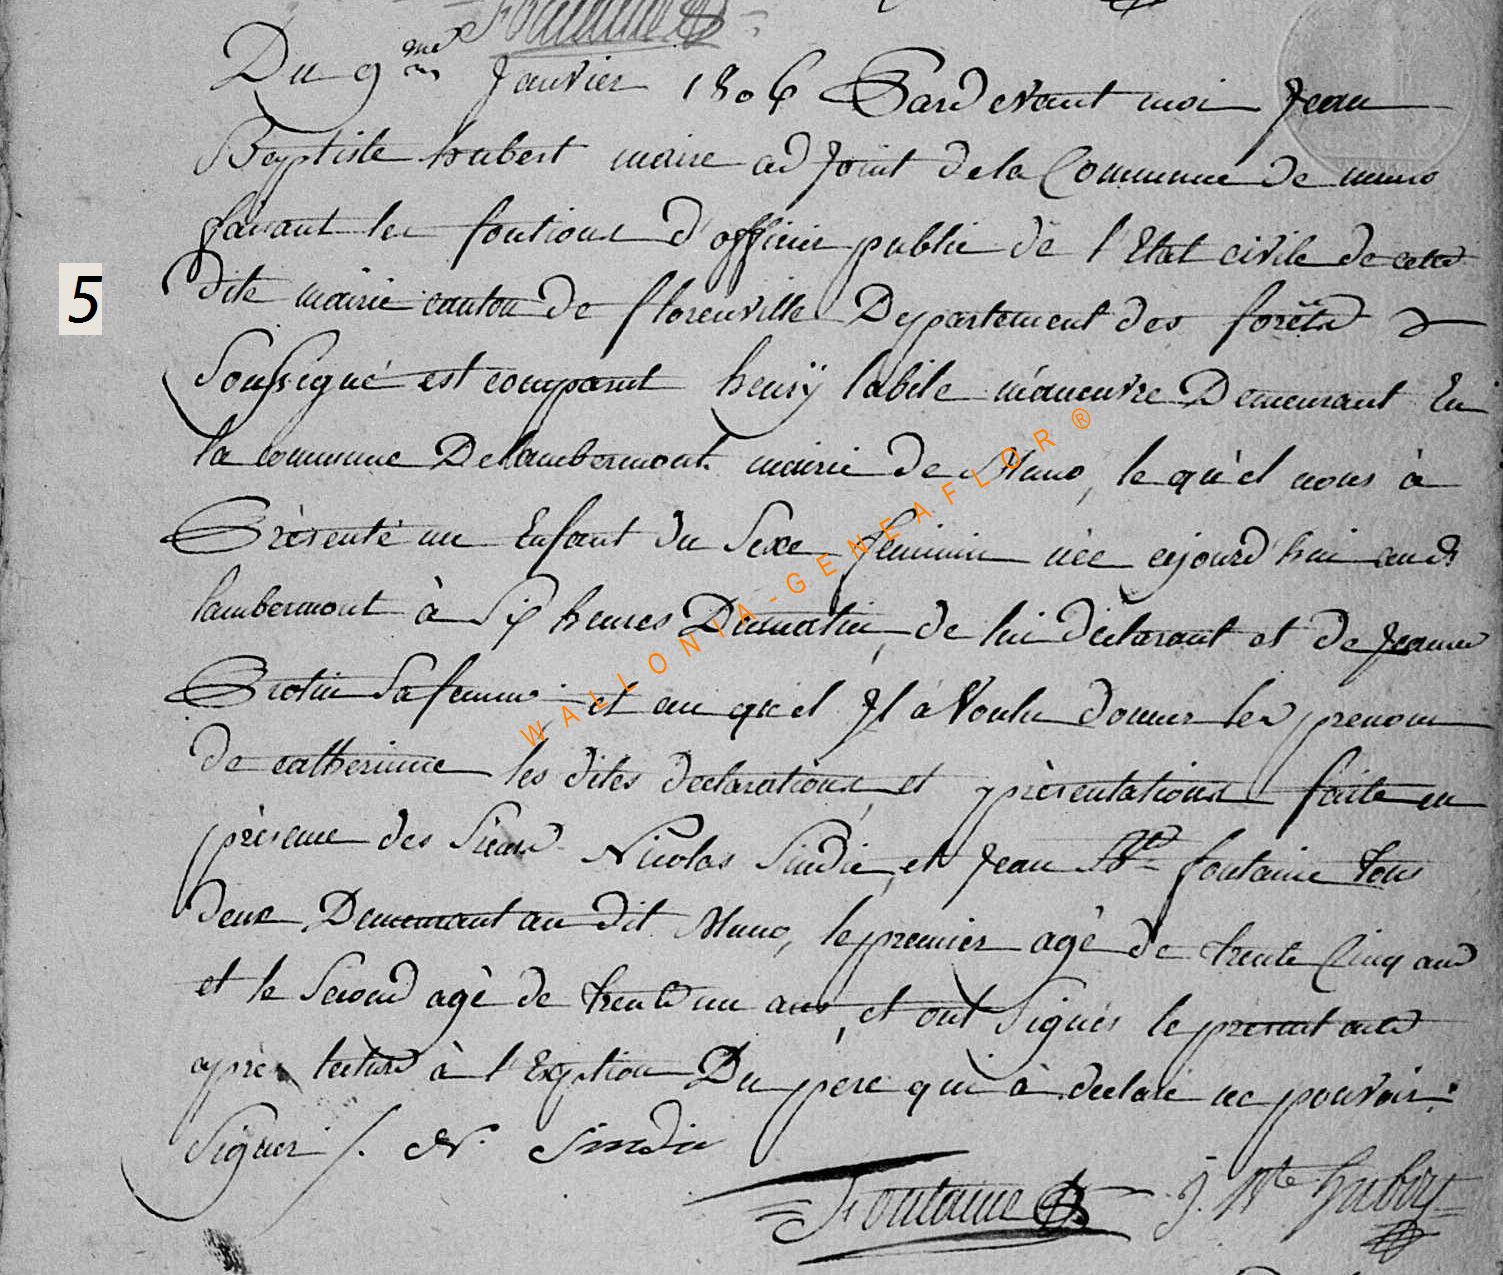 Fontaine
Du 9me Janvier 1806 Pardevant moi Jean
Baptiste hubert maire adjoint de la Commune de muno
faisant les fontions d'officier public de l'Etat civile de cette
5
dite mairie canton de florenville Departement des forêts &
Soussigné est comparut henrÿ labile manœuvre Demeurant En
la commune De lambermont mairie de Muno, le qu'el nous à
Présenté un Enfant du Sexe feminin née aujourd'hui aud
lambermont à Six heures Dumatin, de lui déclarant et de Jeanne
Protin Sa femme et au qu'el Jl à Voulu donner les prenom
de catherinne les dites declarations et présentations faite en
présence des Sieurs Nicolas Sindic, et Jean Bte fontaine tous
deux Demeurant au dit Muno, le premier agé de trente Cinq ans
et le Second agè de trente un ans, et ont Signés le présent acte
après lecture à l'Exption Du père qui à déclaré ne pouvoir
Signer /. N. Sindic
Fontaine J. Bte Hubert
WALLONIA-GENEAFLOR®